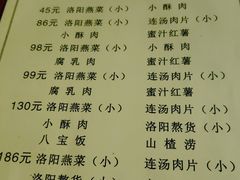 45元 洛阳燕菜（小） 小酥肉
86元 洛阳燕菜（小） 连汤肉片（小）
小酥肉 蜜汁红薯
98元 洛阳燕菜（小） 连汤肉片（小）
腐乳肉 蜜汁红薯
99元 洛阳燕菜（小） 连汤肉片（小）
腐乳肉 蜜汁红薯
130元 洛阳燕菜（小） 连汤肉片（小）
小酥肉 洛阳熬货（小）
八宝饭 山楂涝
186元 洛阳燕菜（小） 连汤肉片（小）
洛阳熬货（小） 小酥肉